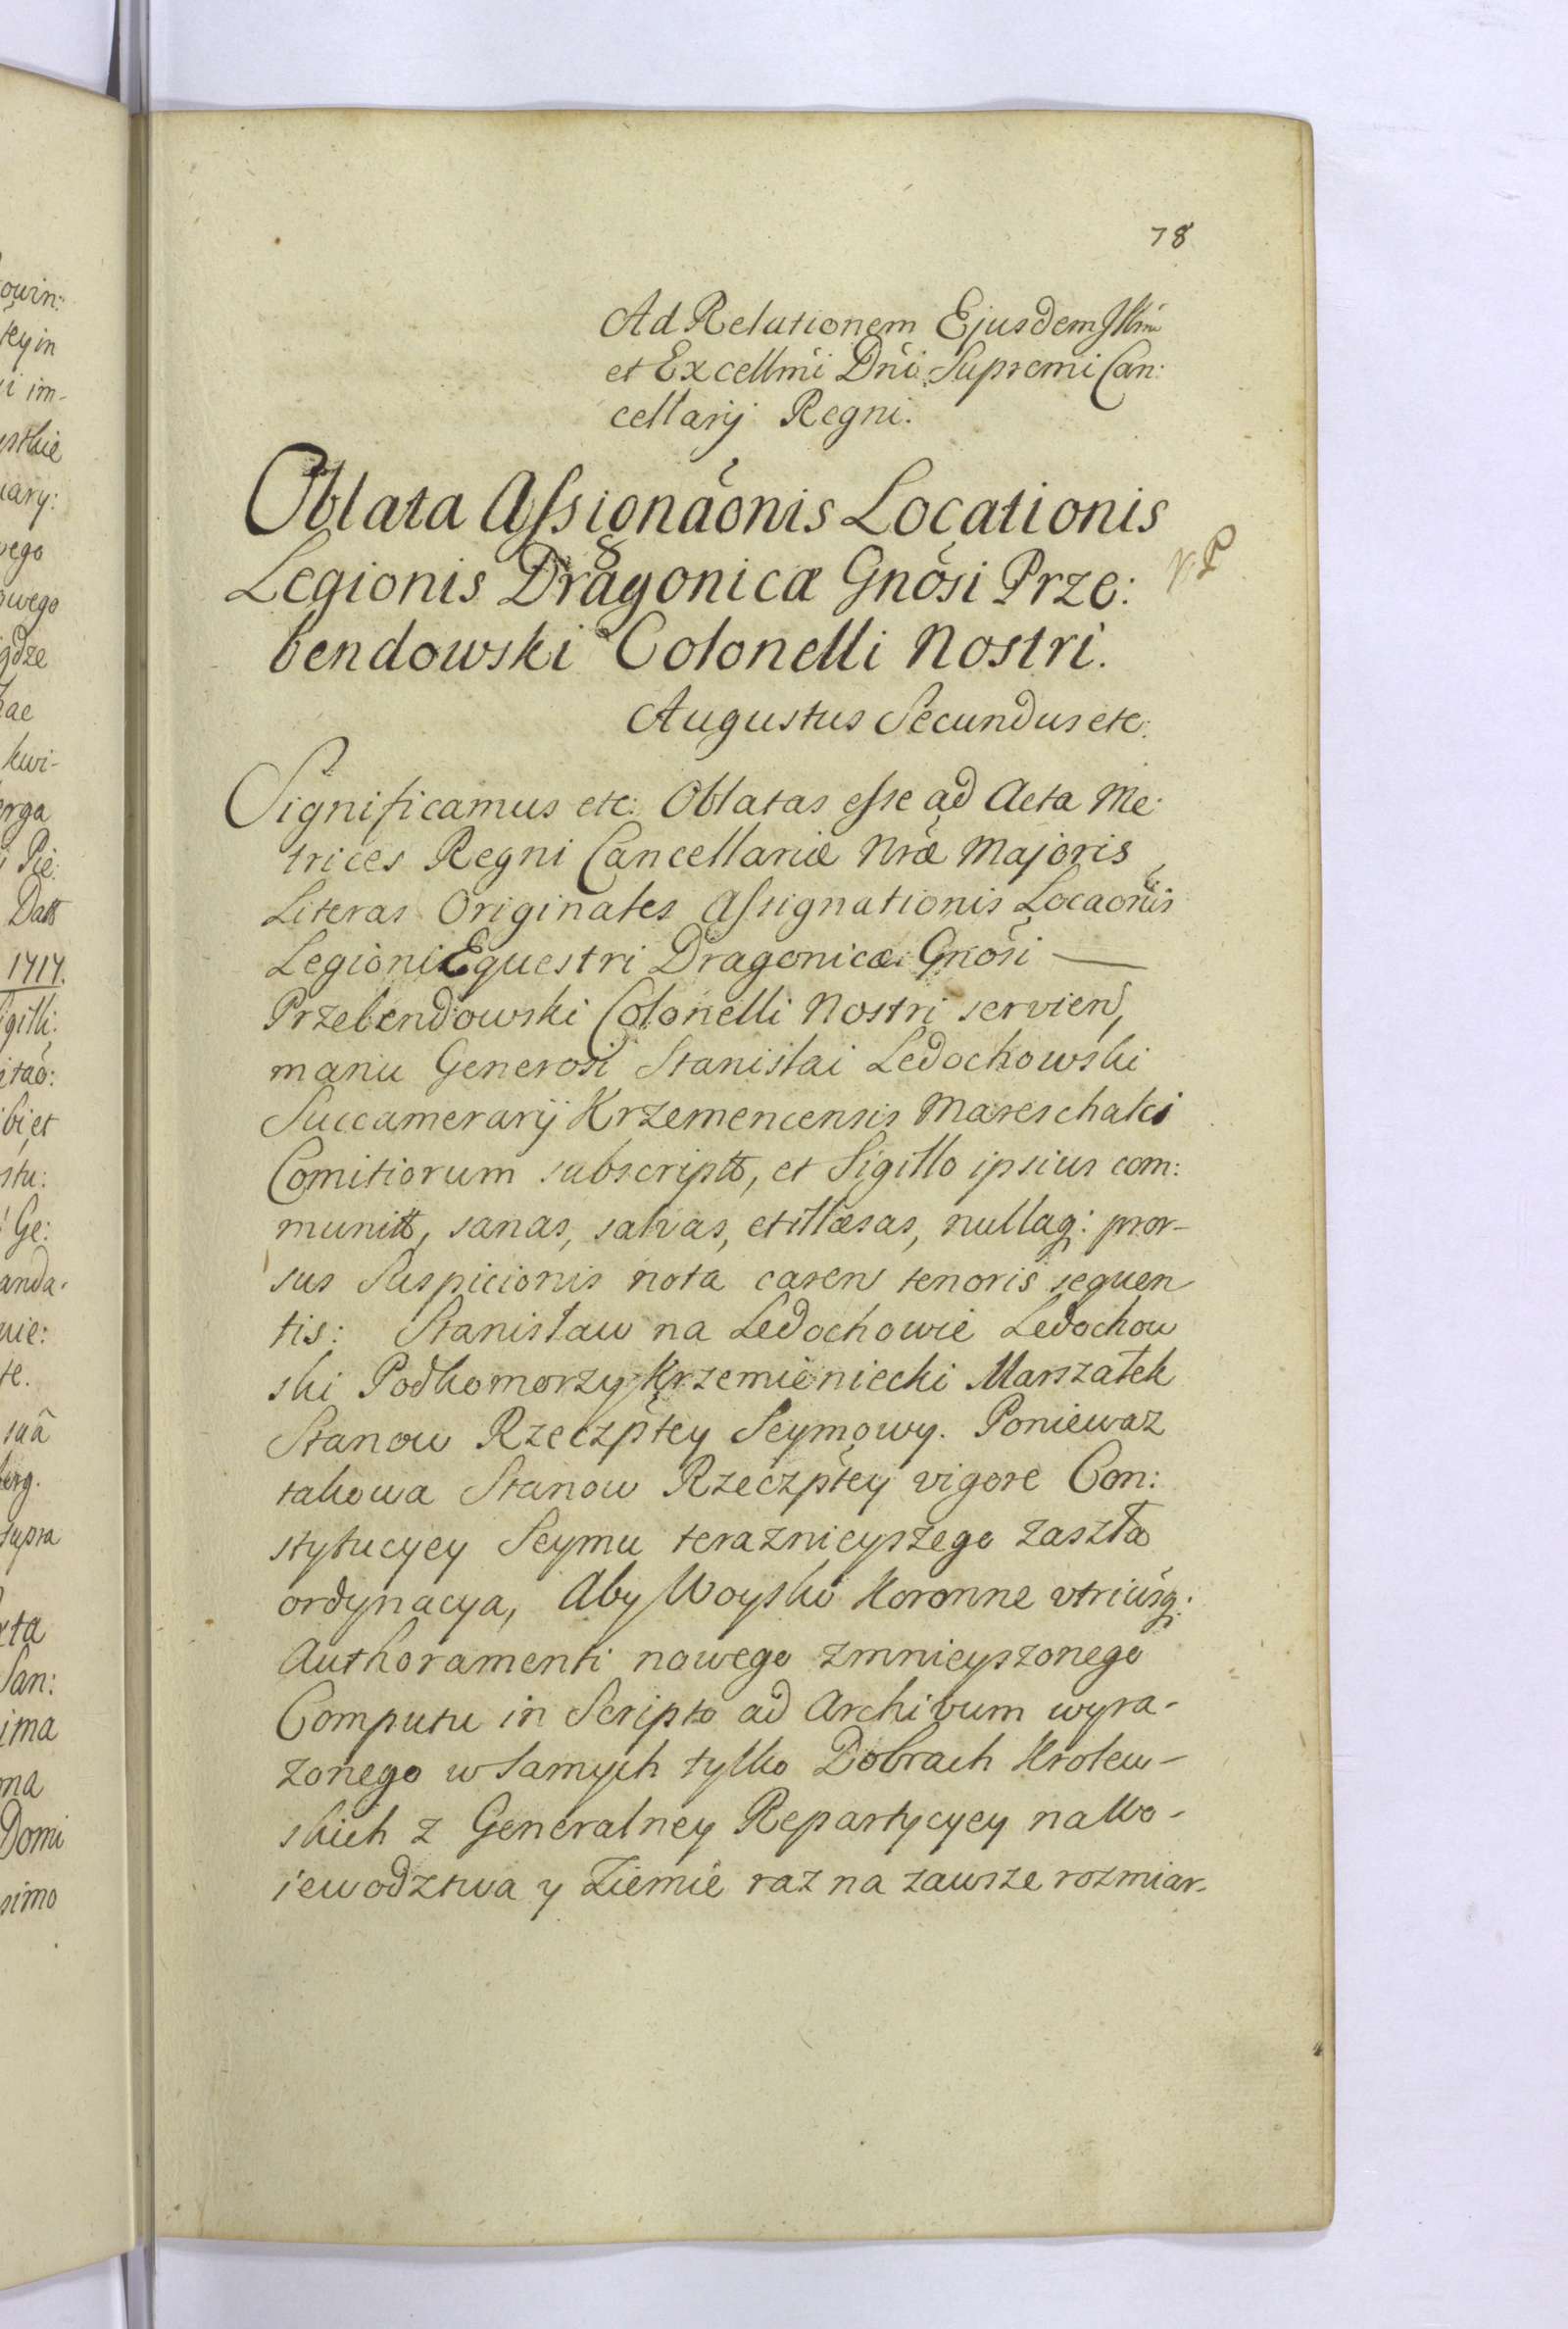 78
Ad Relationem Ejusdem Illmi
et Excellmi Dni Supremi Can:
cellarij Regni.
Oblata Assignaonis Locationis
Legionis Dragonicæ Gnosi Prze:
bendowski Colonelli Nostri.
Augustus Secundus etc:
Significamus etc: Oblatas esse ad Acta Me:
trices Regni Cancellariæ Nræ Majoris
Literas Originales Assignationis Locaonis
Legioni Equestri Dragonicæ Gnosi —
Przebendowski Colonelli Nostri servien,
manu Generosi Stanislai Ledochowski
Succamerarij Krzemencensis Mareschalci
Comitiorum subscriptt, et Sigillo ipsius com:
munitt, sanas, salvas, et illæsas, nullaq: pror-
sus Suspicionis nota caren tenoris sequen
tis: Stanisław na Ledochowie Ledochow
ski Podkomorzy Krzemieniecki Marszałek
Stanow Rzeczptey Seymowy. Poniewaz
takowa Stanow Rzeczptey vigore Con:
stytucyey Seymu teraznieyszego zaszła
ordynacya, Aby Woysko Koronne utriusq:
Authoramenti nowego zmnieyszonego
Computu in Scripto ad Archivum wyra-
zonego w samych tylko Dobrach Krolew-
skich z Generalney Repartycyey na Wo-
iewodztwa y Ziemie raz na zawsze rozmiar-
owin:
tey in
i im-
ystkie
uary:
wego
owego
gdze
kwi-
erga
i Pie:
Datt
1717.
igilli:
itao:
ibi, et
ostu:
Ge:
anda-
nie:
te.
suã
berg.
supra
xta
San:
ima
ona
Domi
simo